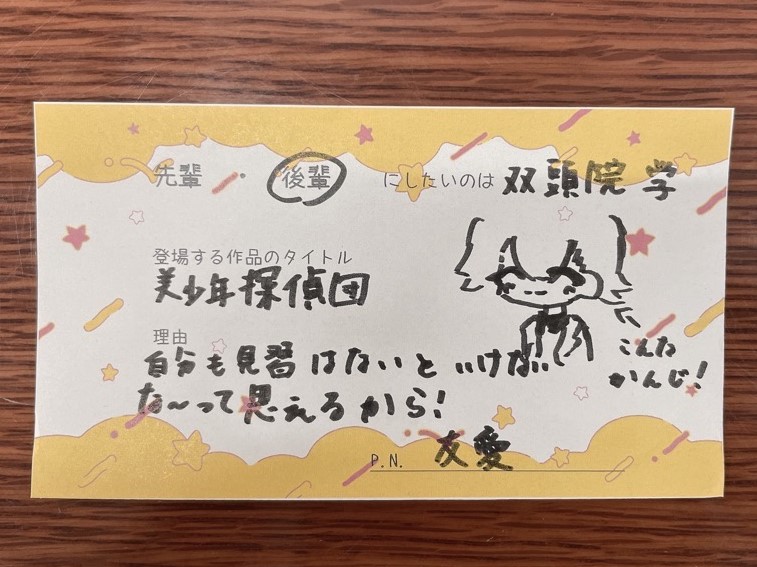 先輩・後輩にしたいのは 双頭院 学
登場する作品のタイトル
美少年探偵団
理由
自分も見習はないといけない
な〜って思えるから!
こんな
かんじ!
P.N. 友愛